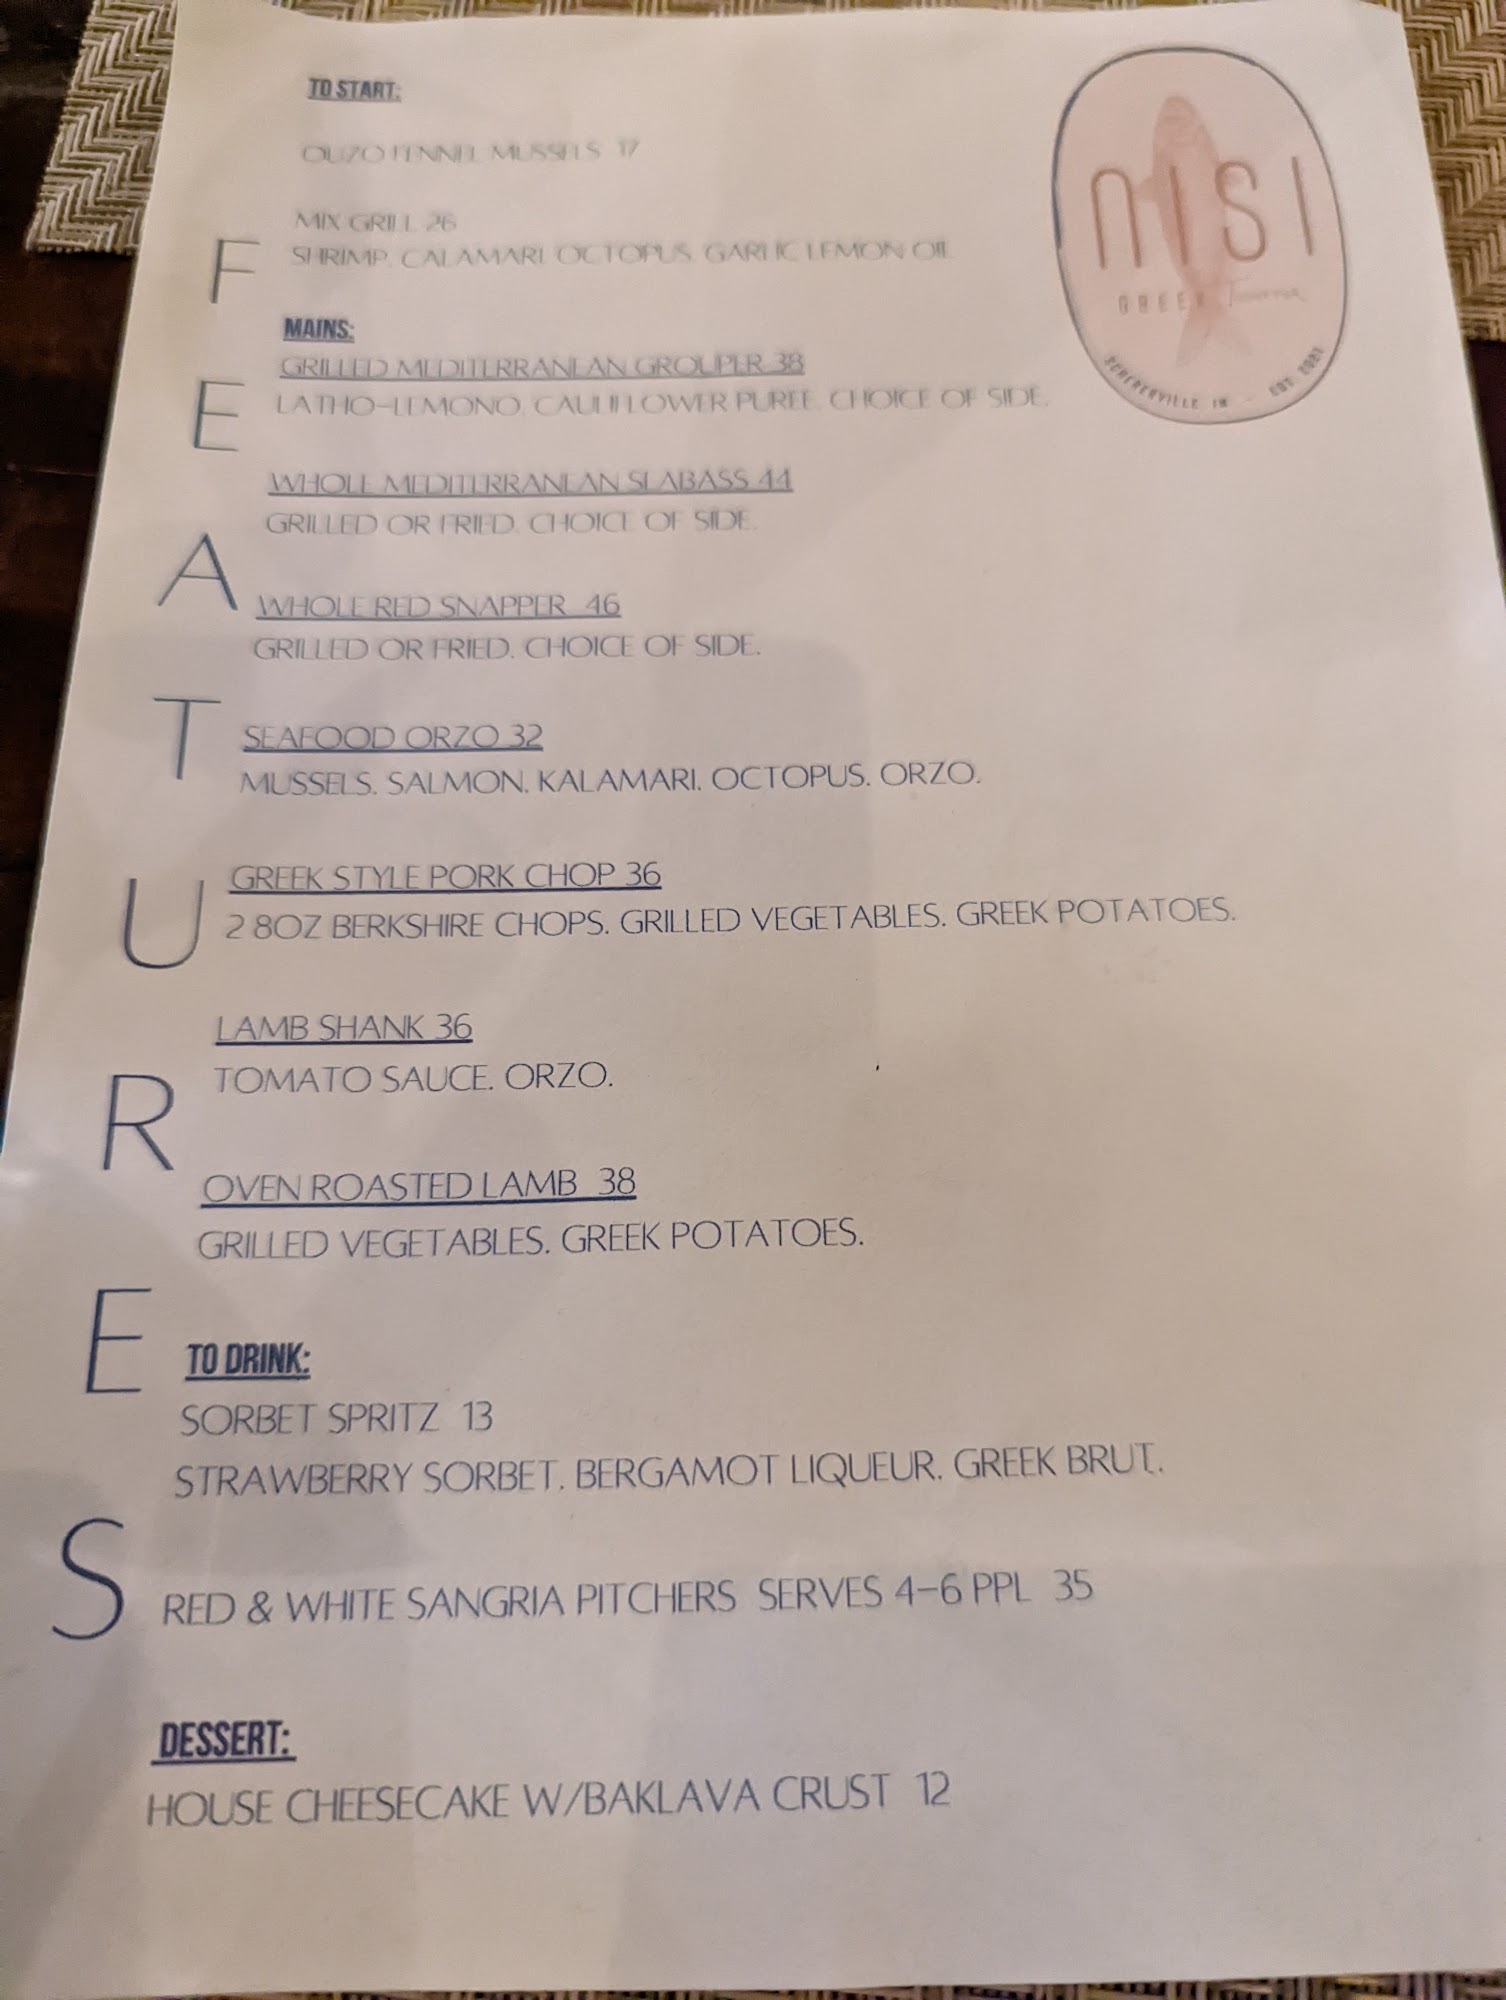 TO START:
OUZO FENNEL MUSSELS 17
MIX GRILL 26
SHRIMP. CALAMARI. OCTOPUS. GARLIC LEMON OIL
MAINS:
GRILLED MEDITERRANEAN GROUPER 38
LATHO-LEMONO. CAULIFLOWER PUREE. CHOICE OF SIDE.
WHOLE MEDITERRANEAN SEABASS 44
GRILLED OR FRIED. CHOICE OF SIDE.
WHOLE RED SNAPPER 46
GRILLED OR FRIED. CHOICE OF SIDE.
SEAFOOD ORZO 32
MUSSELS. SALMON. KALAMARI. OCTOPUS. ORZO.
GREEK STYLE PORK CHOP 36
2 8OZ BERKSHIRE CHOPS. GRILLED VEGETABLES. GREEK POTATOES.
LAMB SHANK 36
TOMATO SAUCE. ORZO.
OVEN ROASTED LAMB 38
GRILLED VEGETABLES. GREEK POTATOES.
TO DRINK:
SORBET SPRITZ 13
STRAWBERRY SORBET. BERGAMOT LIQUEUR. GREEK BRUT.
RED & WHITE SANGRIA PITCHERS SERVES 4-6 PPL 35
DESSERT:
HOUSE CHEESECAKE W/BAKLAVA CRUST 12
FEATURES
NISI
GREEK Taverna
SCHERERVILLE IN - EST. 2021